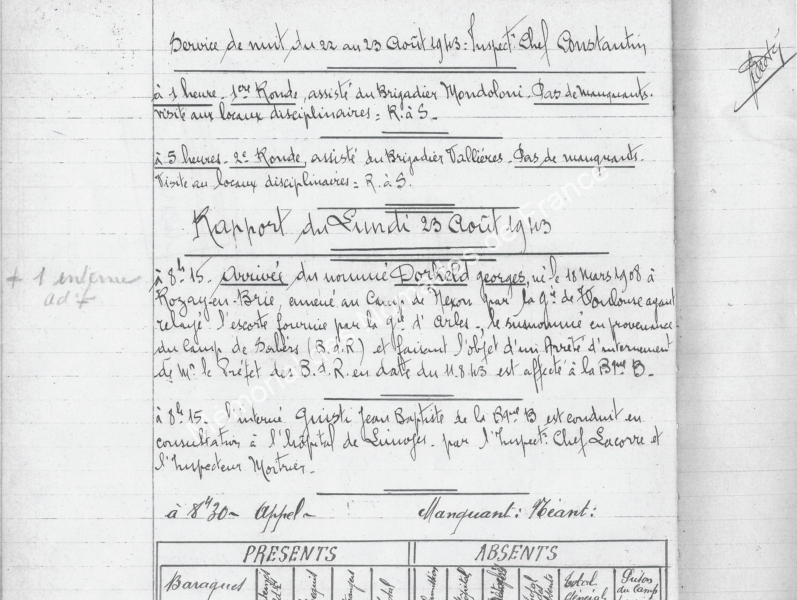 Service de nuit du 22 au 23 Août 1943 = Inspectr Chef Constantin
à 1 heure - 1ère Ronde, assisté du Brigadier Mondoloni - Pas de manquants -
visite aux locaux disciplinaires = R. à S. -
à 5 heures - 2e Ronde, assisté du Brigadier Vallières - Pas de manquants -
Visite au locaux disciplinaires = R. à S.
Rapport du Lundi 23 Août 1943
+ 1 interne
à 8h15 - Arrivée du nommé Dorheid georges, né le 18 Mars 1908 à
Rozay-en-Brie, emené au Camp de Nexon par la gie de Toulouse ayant
relayé l'escorte fournie par la gie d'Arles -, le susnommé en provenance
du Camp de (B.d.R) et faisant l'objet d'un Arrêté d'internement
de Mr le Préfet des B.d.R. en date du 11.8.43 est affecté à la Bque B -
à 8h15 - l'interné Giusti Jean Baptiste de la Bque B est conduit en
consultation à l'hôpital de Limoges - par l'Inspectr Chef Lacorre et
l'Inspecteur Mortrier -
à 8h30 - Appel - Manquant : Néant :
PRESENTS ABSENTS
Baraques Total Général Prison du Camp